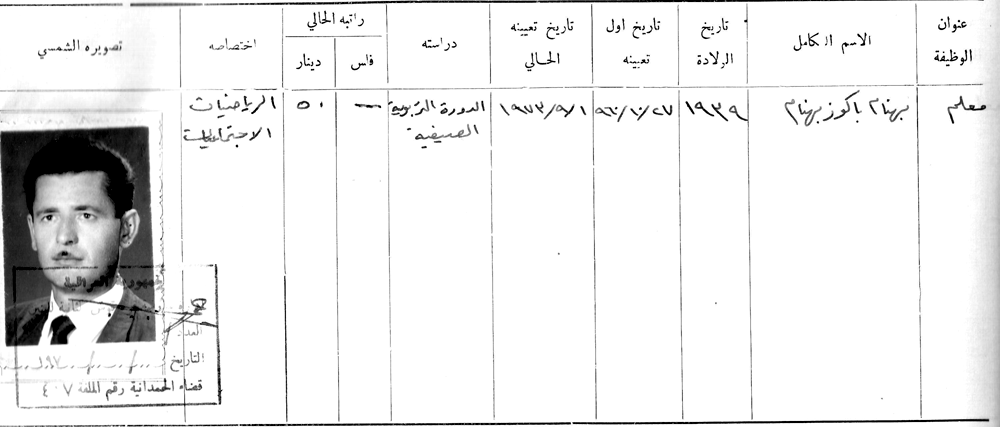 عنوان الوظيفة
الاسم الكامل
تاريخ الولادة
تاريخ اول تعيينه
تاريخ تعيينه الحالي
دراسته
راتبه الحالي
فلس
دينار
اختصاصه
تصويره الشمسي
معلم
بهنام باكوز بهنام
١٩٣٩
٩٦٠/١٠/٢٧
١٩٧٣/٩/١
الدورة التربوية
الصيفية
—
٥٠
الرياضيات
الاجتماعيات
جمهورية العراقية
العدد
التاريخ
قضاء الحمدانية رقم الملفة ٤٠٧